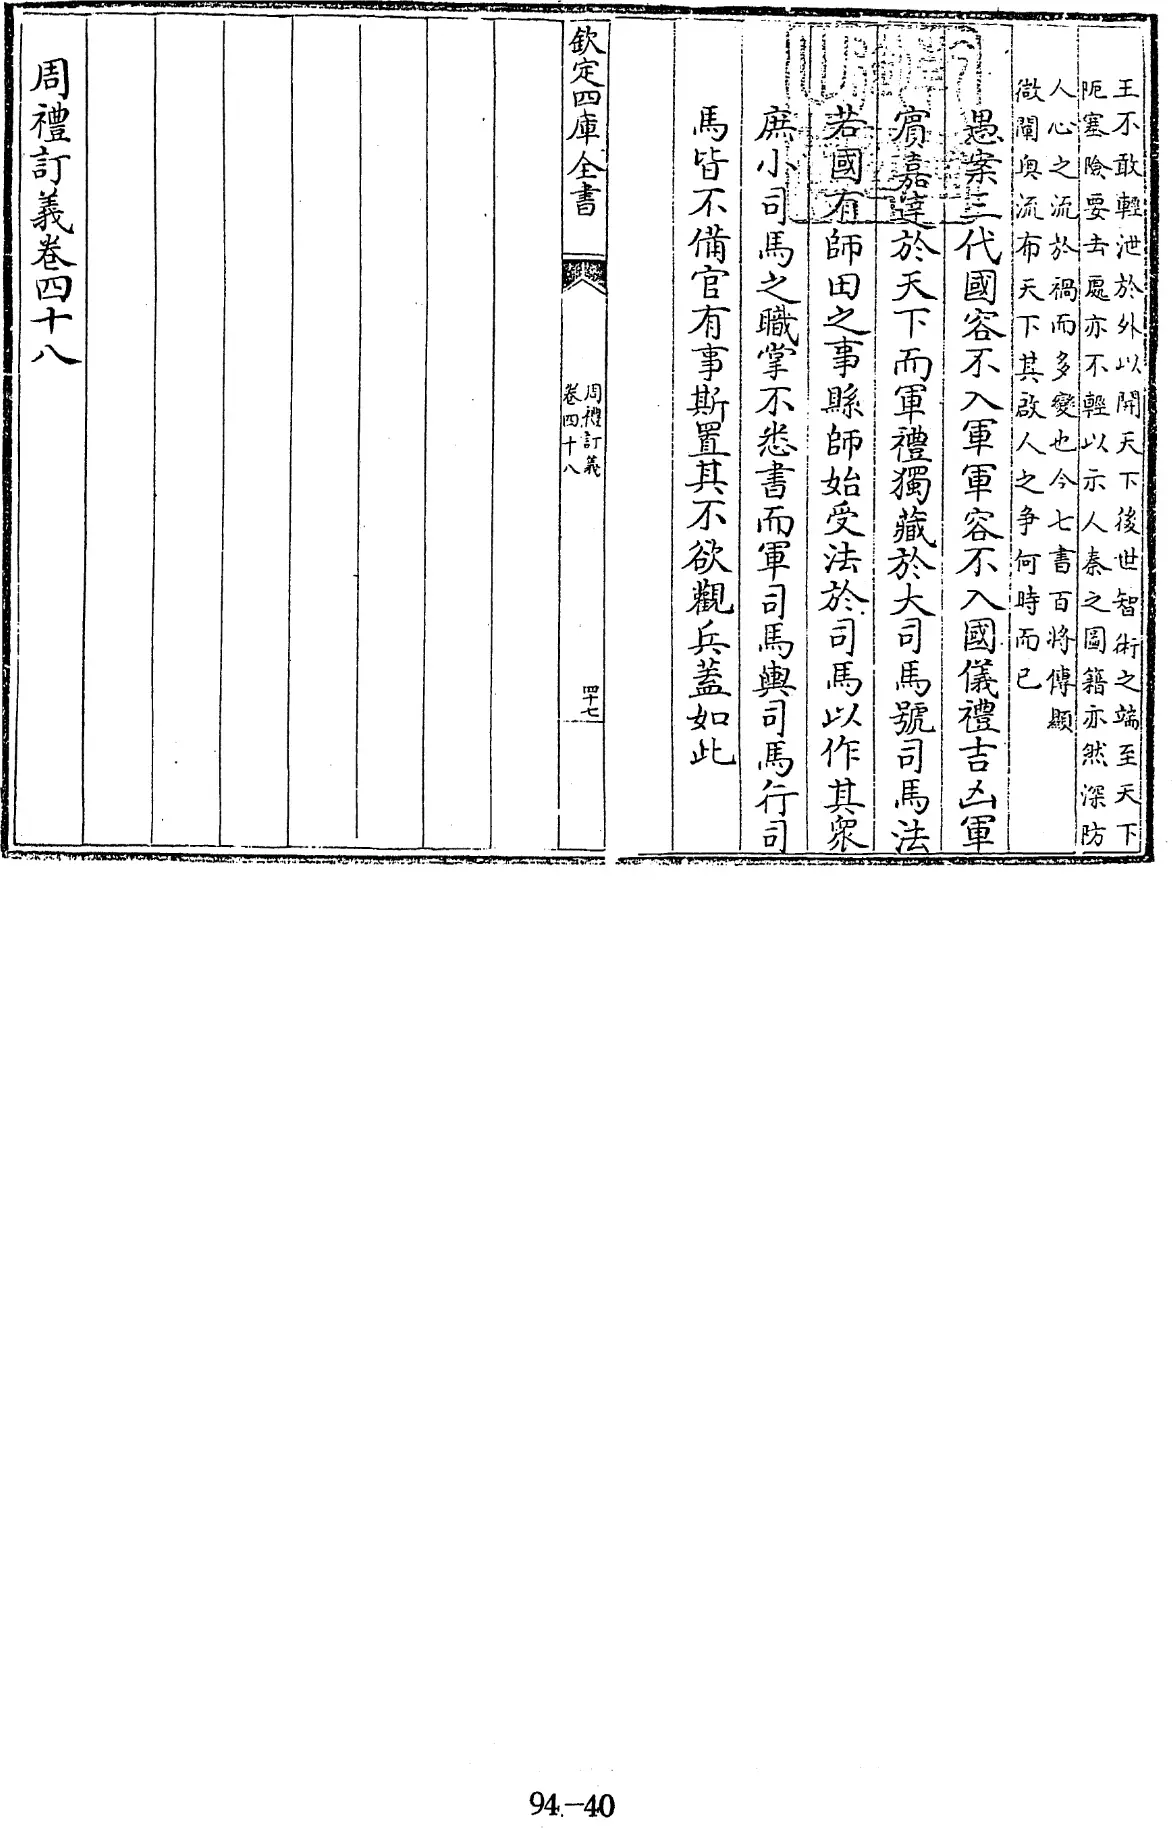 王不敢輕泄於外以開天下後世智術之端至天下
阨塞險要去處亦不輕以示人秦之圖籍亦然深防
人心之流於禍而多變也今七書百將傳顯
微闡奥流布天下其啟人之争何時而已
愚案三代國容不入軍軍容不入國儀禮吉凶軍
賓嘉達於天下而軍禮獨藏於大司馬號司馬法
若國有師田之事縣師始受法於司馬以作其衆
庶小司馬之職掌不悉書而軍司馬輿司馬行司
馬皆不備官有事斯置其不欲觀兵蓋如此
欽定四庫全書
周禮訂義
卷四十八
四十七
周禮訂義卷四十八
94-40